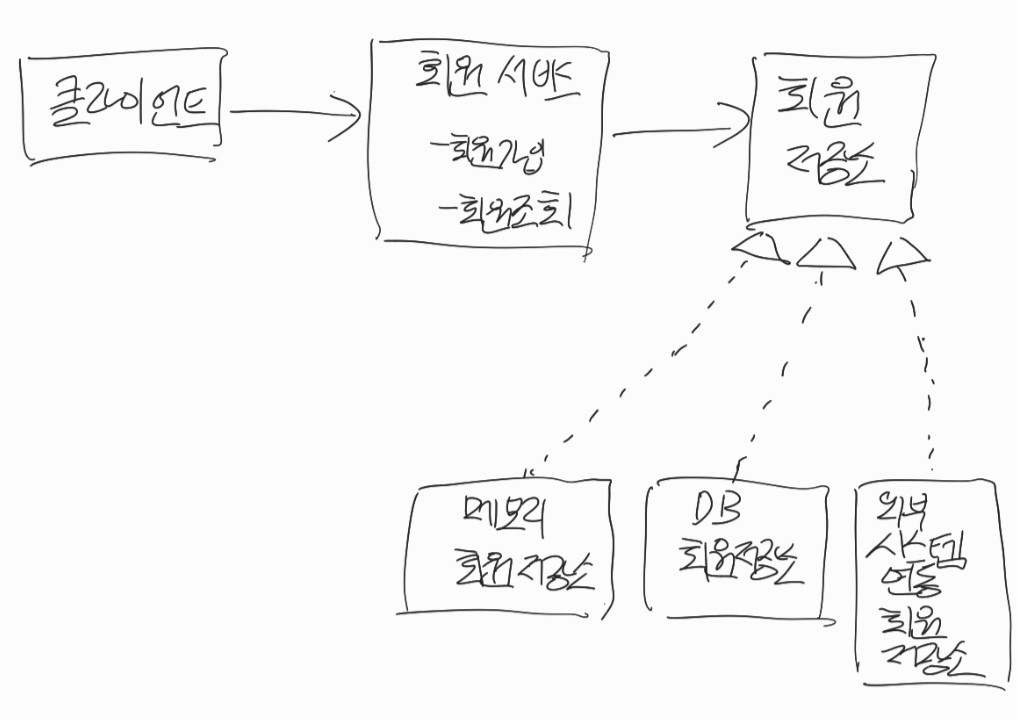 클라이언트
회원 서비스
-회원가입
-회원조회
회원
저장소
메모리
회원 저장소
DB
회원저장소
외부
시스템
연동
회원
저장소